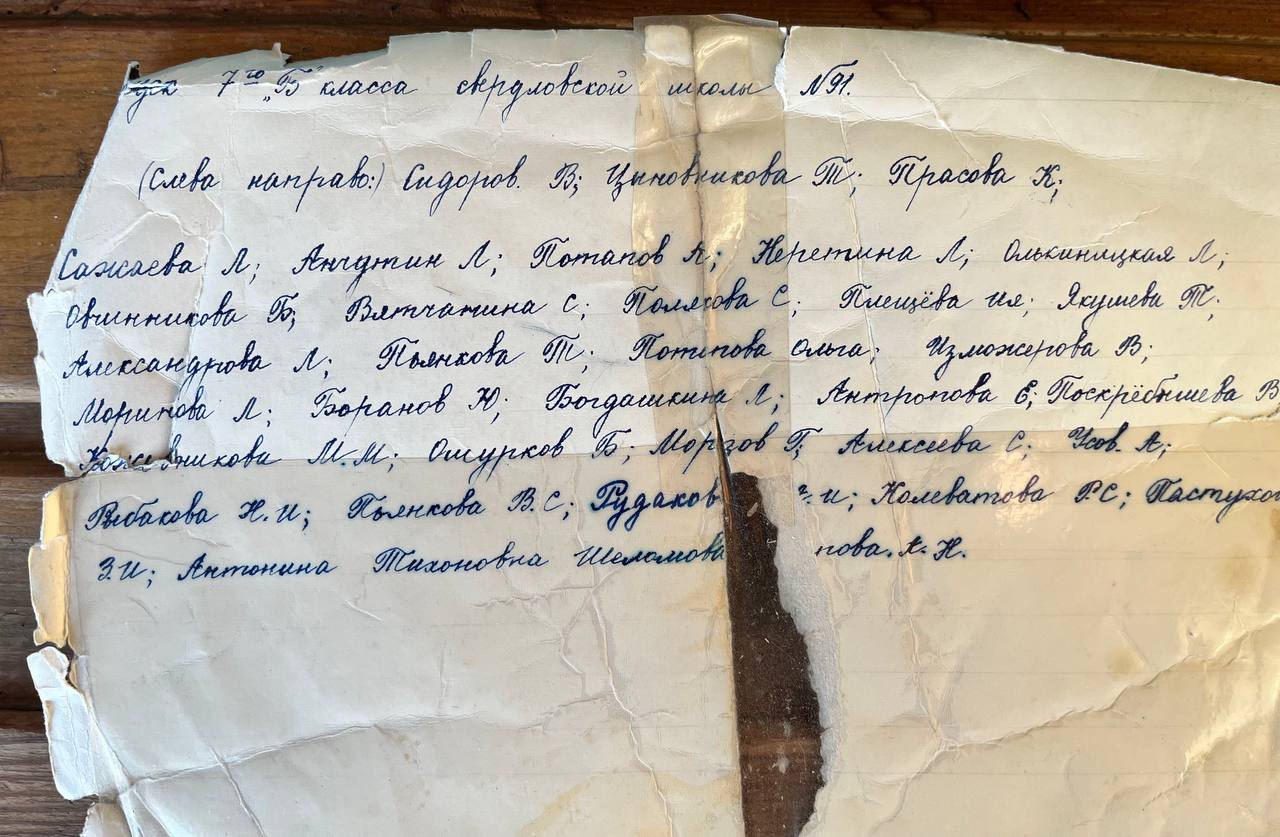 уск 7го „Б" класса свердловской школы №91.
(Слева направо:) Сидоров. В; Цыновникова Т; Прасова К;
Сажаева Л; Анчутин Л; Потапов А; Неретина Л; Олькиницкая Л;
Овчинникова Б; Вятчатина С; Поляхова С; Плещёва ия; Якушева Т;
Александрова Л; Пьянкова Т; Потапова Ольга; Изможерова В;
Маринова Л; Баранов Ю; Богдашкина Л; Антропова Е; Поскрёбышева В
Кожевникова М.М; Ошурков Б; Морзов Г; Алексеева С; Усов. А;
Рыбакова Н.И; Пьянкова В.С; Рудаков г.и; Колеватова Р.С; Пастухов
З.И; Антонина Тихоновна Шеломова пова. А. Н.